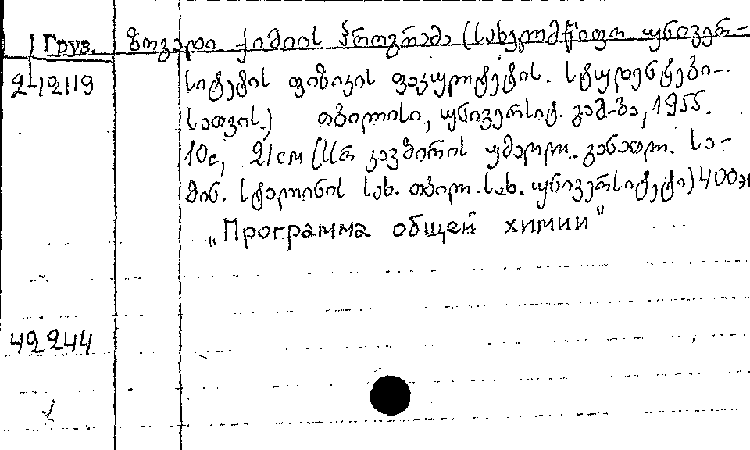 1 Груз. ზოგადი ქიმიის პროგრამა (სახელმწიფო უნივერ-
2-12119 სიტეტის ფიზიკის ფაკულტეტის. სტუდენტები-
სათვის.) თბილისი, უნივერსიტ. გამ-ბა, 1955.
10с, 21см (სსრ კავშირის უმაღლ. განათლ. სა-
მინ. სტალინის სახ. თბილ. სახ. უნივერსიტეტი) 400ეგ
„Программа общей химии“
42244